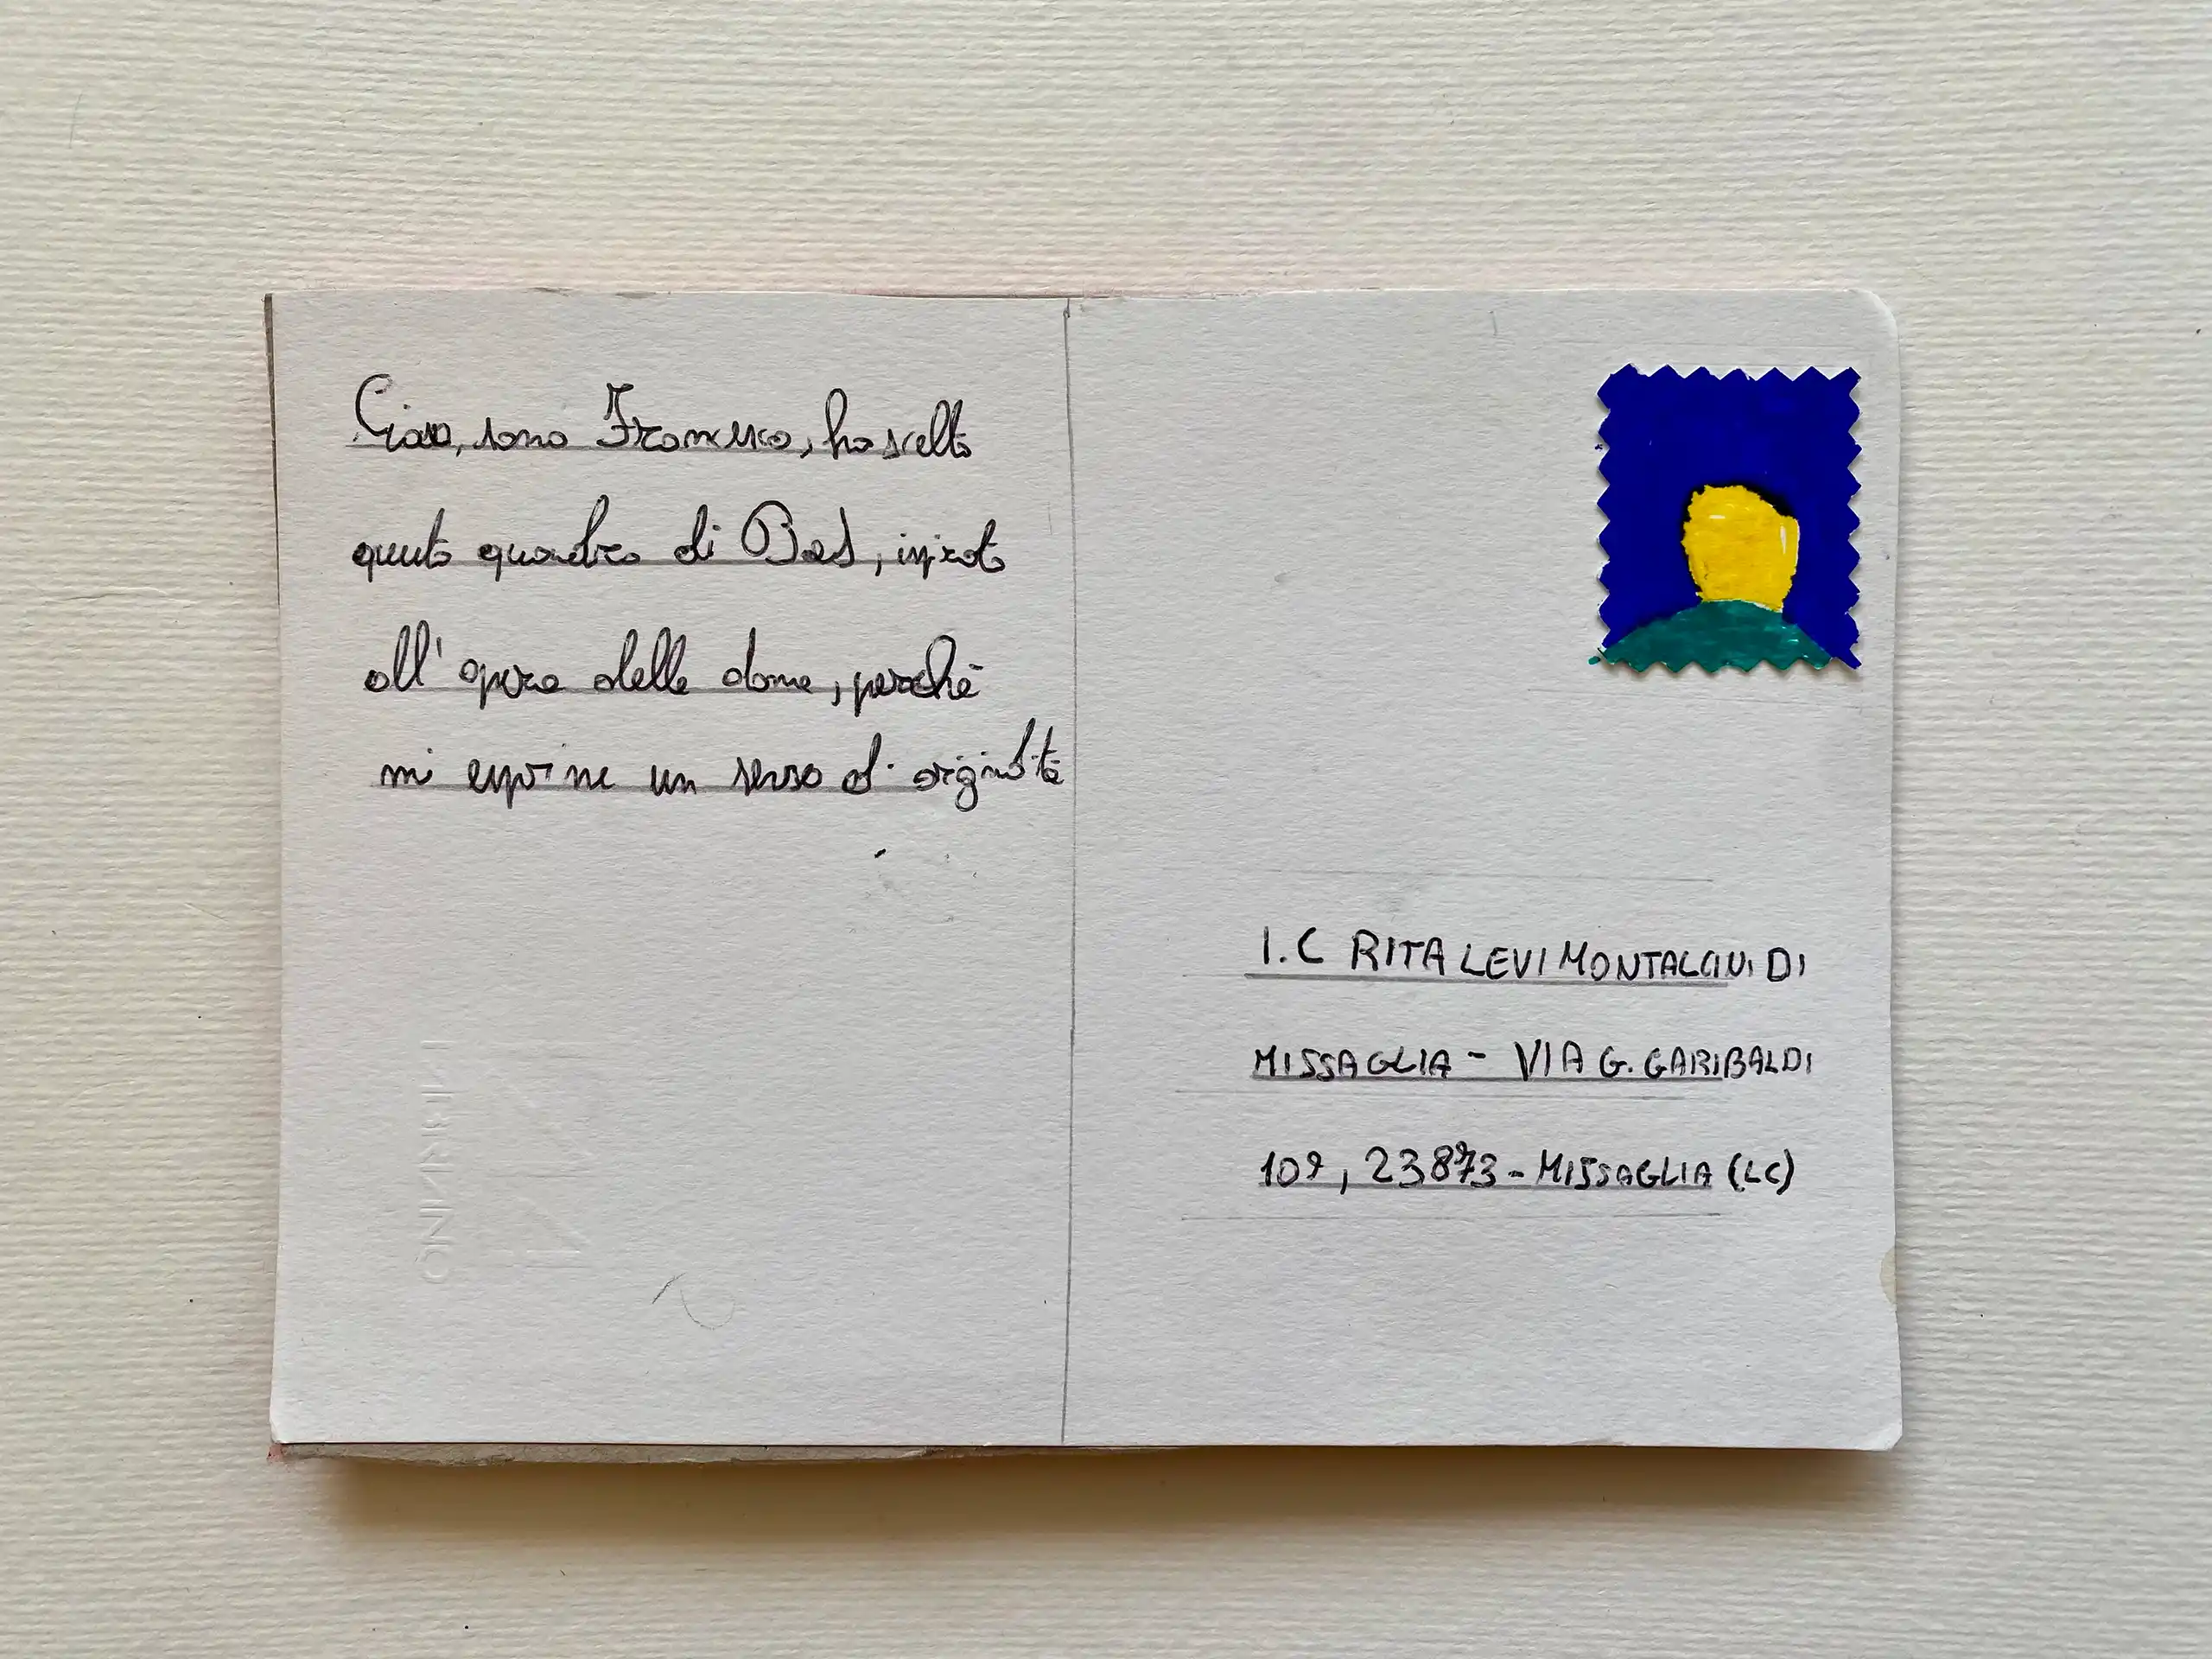 Ciao, sono Francesco, ho scelto
questo quadro di Bas, ispirato
all'opera delle donne, perchè
mi esprime un senso di originalità
I.C RITA LEVI MONTALCINI DI
MISSAGLIA - VIA G. GARIBALDI
109, 23873 - MISSAGLIA (LC)
FABRIANO